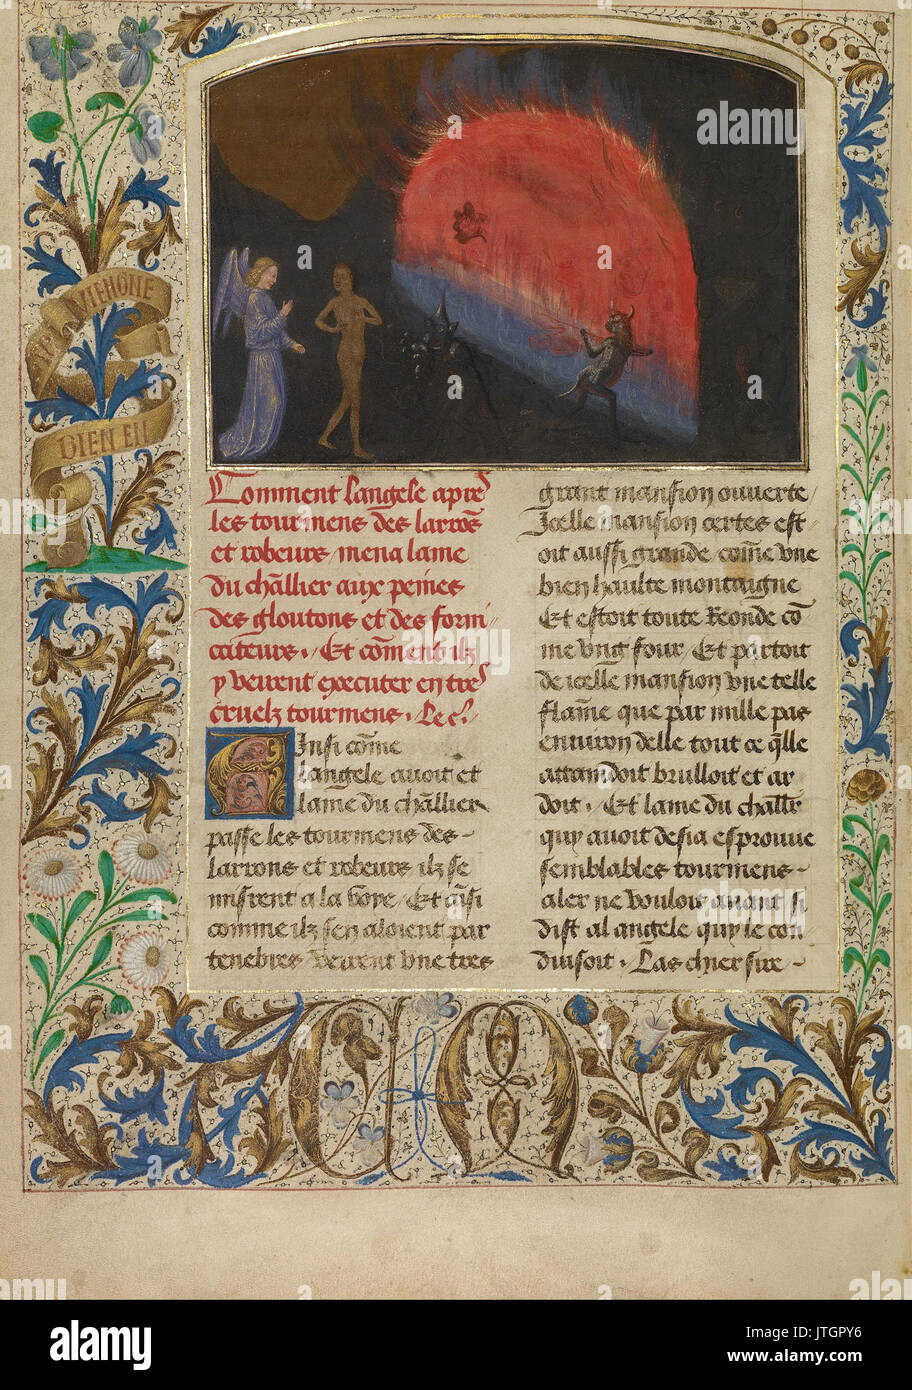 AP VIENGNE
BIEN EN
Comment langele apres
les tourmens des larrons
et robeurs mena lame
du chãllier aux peines
des gloutons et des forni
cateurs. Et cõment ilz
y veirent executer en tres
cruelz tourmens. Le C.
Ainsi cõme
langele avoit et
lame du chãllier
passe les tourmens des
larrons et robeurs ilz se
misrent a la voye / Et aĩsi
comme ilz sen aloient par
tenebres / veirent vne tres
grant mansion ouverte /
Icelle mansion certes est-
oit aussi grande cõme vne
bien haulte montaigne
Et estoit toute Reonde cõ
me vng four / Et partoit
de icelle mansion vne telle
flãme que par mille pas
enuiron delle tout ce q̃lle
attaindoit brulloit et ar
doit. Et lame du chãllr
quy avoit desia esprouue
semblables tourmens -
aler ne vouloit avant si
dist al angele quy le con
duisoit. Las chier sire -
CM
a
alamy
Image ID: JTGPY6
www.alamy.com